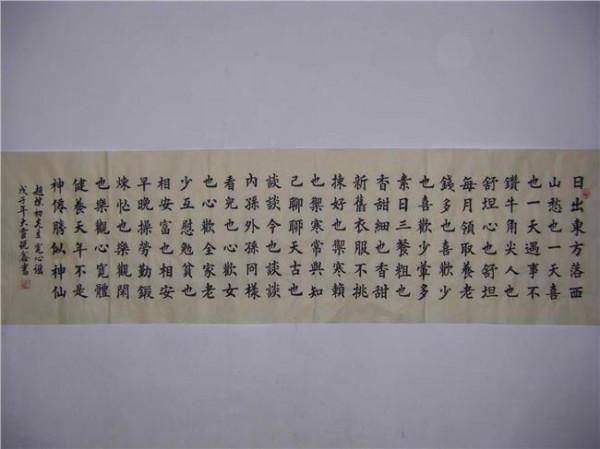 日出東方落西
山愁也一天喜
也一天遇事不
鑽牛角尖人也
舒坦心也舒坦
每月領取養老
錢多也喜歡少
也喜歡少葷多
素日三餐粗也
香甜細也香甜
新舊衣服不挑
揀好也禦寒賴
也禦寒常與知
己聊聊天古也
談談今也談談
內孫外孫同樣
看兒也心歡女
也心歡全家老
少互慰勉貧也
相安富也相安
早晚操勞勤鍛
煉忙也樂觀閑
也樂觀心寬體
健養天年不是
神僊勝似神仙
趙樸初先生寬心謠
戊子年大雪書